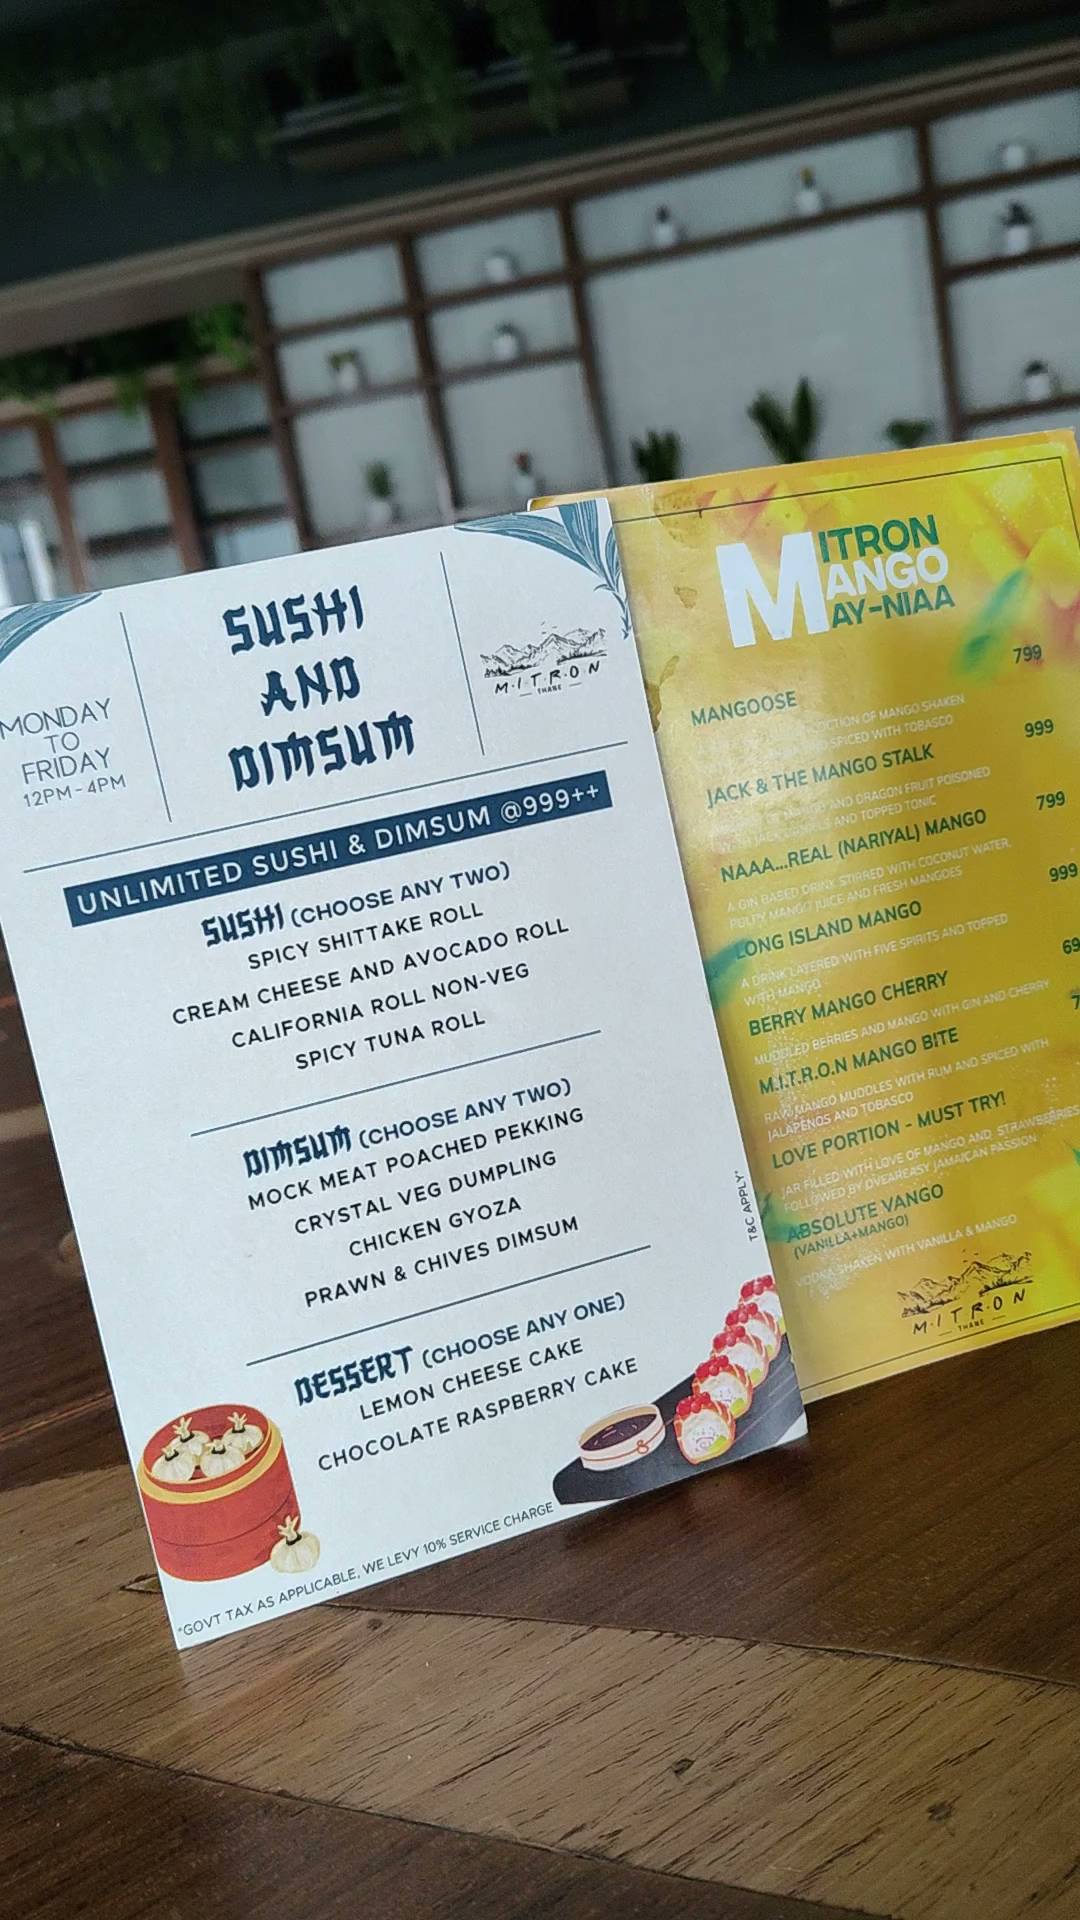 MONDAY
TO
FRIDAY
12PM-4PM
SUSHI
AND
DIMSUM
M.I.T.R.O.N
THANE
UNLIMITED SUSHI & DIMSUM @999++
SUSHI (CHOOSE ANY TWO)
SPICY SHITTAKE ROLL
CREAM CHEESE AND AVOCADO ROLL
CALIFORNIA ROLL NON-VEG
SPICY TUNA ROLL
DIMSUM (CHOOSE ANY TWO)
MOCK MEAT POACHED PEKKING
CRYSTAL VEG DUMPLING
CHICKEN GYOZA
PRAWN & CHIVES DIMSUM
DESSERT (CHOOSE ANY ONE)
LEMON CHEESE CAKE
CHOCOLATE RASPBERRY CAKE
*GOVT TAX AS APPLICABLE, WE LEVY 10% SERVICE CHARGE
T&C APPLY*
MITRON
MANGO
MAY-NIAA
MANGOOSE 799
OF MANGO SHAKEN
SPICED WITH TOBASCO
JACK & THE MANGO STALK 999
AND DRAGON FRUIT POISONED
AND TOPPED TONIC
NAAA...REAL (NARIYAL) MANGO 799
A GIN BASED DRINK STIRRED WITH COCONUT WATER,
MANGO JUICE AND FRESH MANGOES
LONG ISLAND MANGO 999
A DRINK LAYERED WITH FIVE SPIRITS AND TOPPED
WITH MANGO
BERRY MANGO CHERRY 69
MUDDLED BERRIES AND MANGO WITH GIN AND CHERRY
M.I.T.R.O.N MANGO BITE 7
RAW MANGO MUDDLES WITH RUM AND SPICED WITH
JALAPENOS AND TOBASCO
LOVE PORTION - MUST TRY!
JAR FILLED WITH LOVE OF MANGO AND STRAWBERRIES
FOLLOWED BY DVEAHEASY JAMAICAN PASSION
ABSOLUTE VANGO
(VANILLA+MANGO)
VODKA SHAKEN WITH VANILLA & MANGO
M.I.T.R.O.N
THANE